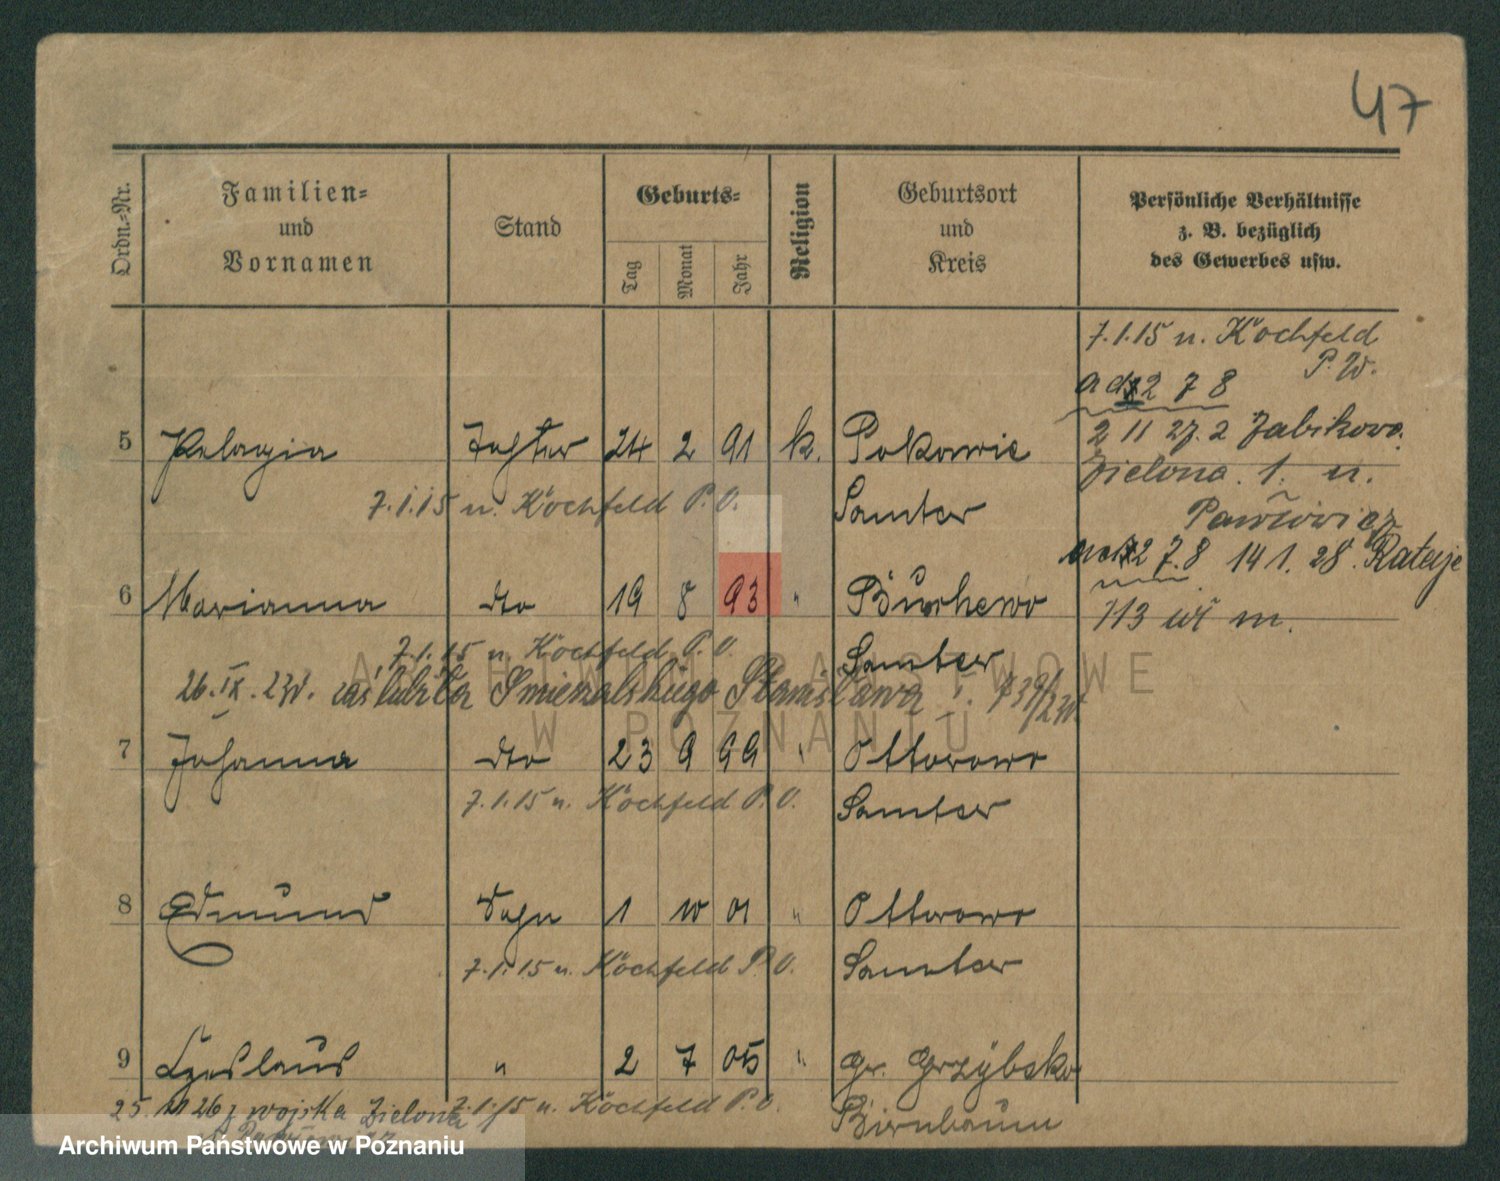 47
Ordn.-Nr.
Familien-
und
Vornamen
Stand
Geburts-
Tag
Monat
Jahr
Religion
Geburtsort
und
Kreis
Persönliche Verhältnisse
z. B. bezüglich
des Gewerbes usw.
7.1.15 n. Kochfeld
P. W.
2 7 8
5 Pelagia Tochter 24 2 91 k. Pokowie
2 11 27. 2 Żabikowo.
Zielona. 1. u.
7.1.15 n. Kochfeld P. O. Samter
Pawłowicz
2 7.8 14 1. 28. Rataje
6 Marianna dto 19 8 93 "
113 m.
7.1.15 n. Kochfeld P. O. Samter
26. IX. 23r. zaślubiła Smienalskiego Stanisława
ARCHIWUM PAŃSTWOWE
W POZNANIU
7 Johanna dto 23 9 99 " Ottorowo
7.1.15 n. Kochfeld P. O. Samter
8 Edmund Sohn 1 10 01 " Ottorowo
7.1.15 n. Kochfeld P. O. Samter
9 Czeslaus " 2 7 05 " Gr. Grzybsko
25. 11 26 z wojska Zielona 7.1.15 n. Kochfeld P. O. Birnbaum
Archiwum Państwowe w Poznaniu